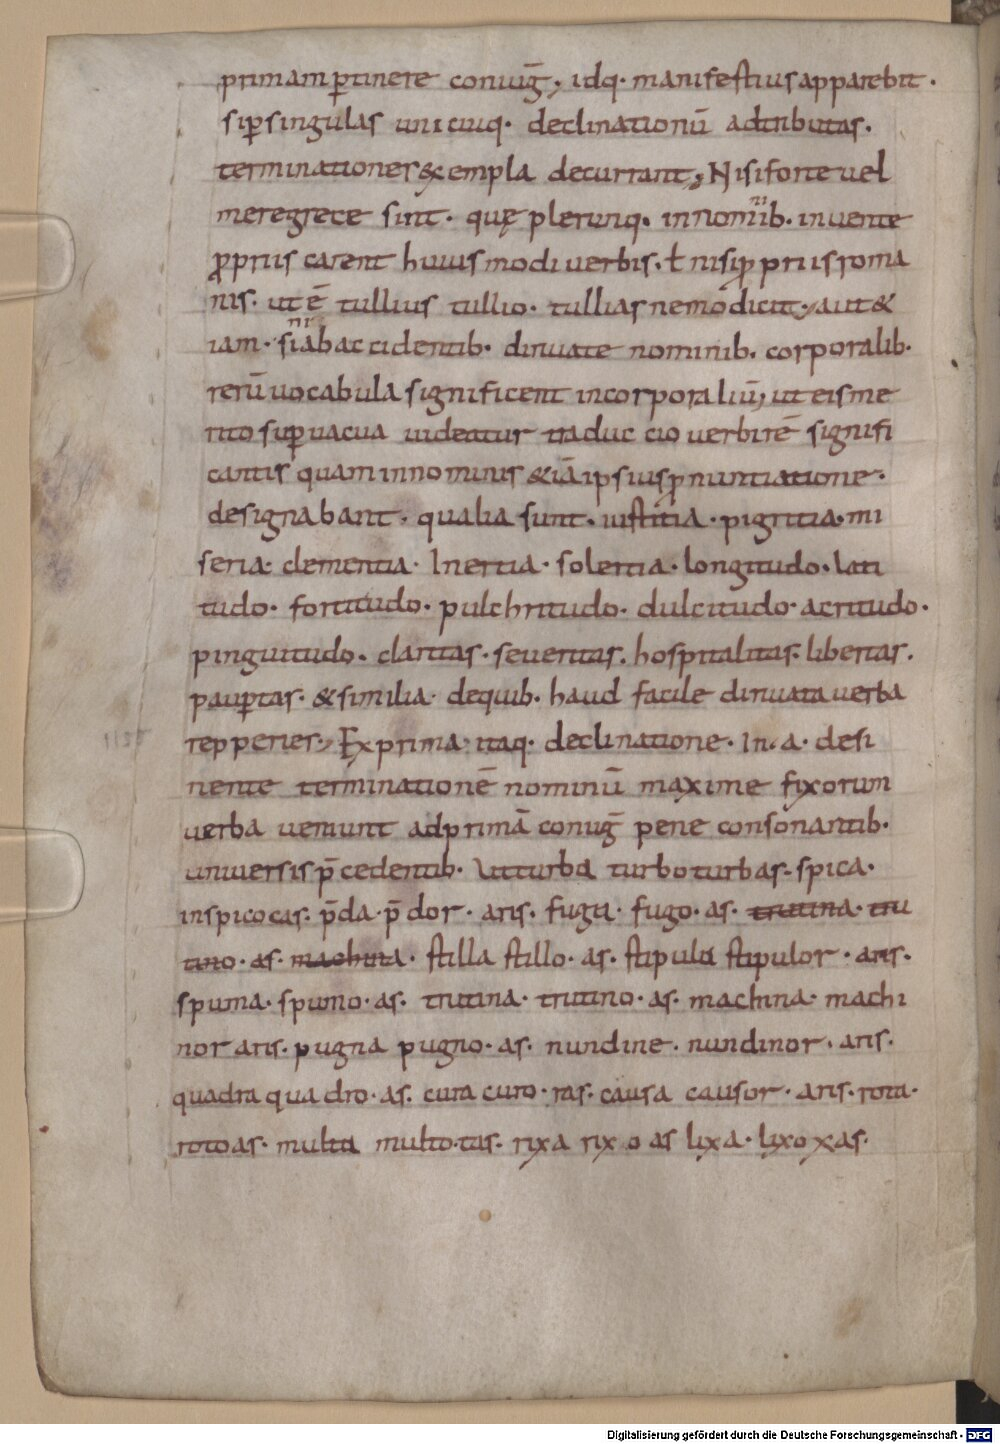 primam ꝑtinere coniug̅; idq· manifestius apparebit.
si ꝑ singulas unicuiq· declinationū adtributas.
terminationes exempla decurrant; Nisi forte uel
mere grece sint· quę plerunq· in nominib· inuente
ꝓpriis carent huiusmodi uerbis· ł nisi ꝓpriis roma
nis· ut ē tullius tullio· tullias nemo dicit; aut &
iam· si ab accidentib· diriuate nominib· corporalib·
rerū uocabula significent incorporaliū; ut eis me
rito suꝑuacua uideatur traductio uerbi rē signifi
cantis quam in nominis &iā ipsius ꝓnuntiatione·
designabant· qualia sunt· iustitia· pigritia· mi
seria· clementia· Inertia· solertia· longitudo· lati
tudo· fortitudo· pulchritudo· dulcitudo· acritudo·
pinguitudo· claritas· seueritas· hospitalitas· libertas·
pauꝑtas· & similia· dequib· haud facile diriuata uerba
repperies; Ex prima itaq· declinatione· In· a· desi
nente terminationē nominū maxime fixorum
uerba ueniunt ad primā coniug̅ pene consonantib·
uniuersis p̄cedentib· Ut turba turbo turbas· spica·
inspico cas· p̄da· p̄dor· aris· fuga· fugo· as· trutina· tru
tino· as· machina· stilla stillo· as· stipula stipulor· aris·
spuma· spumo· as· trutina· trutino· as· machina· machi
nor aris· pugna pugno· as· nundine· nundinor· aris·
quadra quadro· as· cura curo· ras· causa causor· aris· rota·
roto as· multa multo· tas· rixa rixo as lixa· lixo xas·
Digitalisierung gefördert durch die Deutsche Forschungsgemeinschaft · DFG